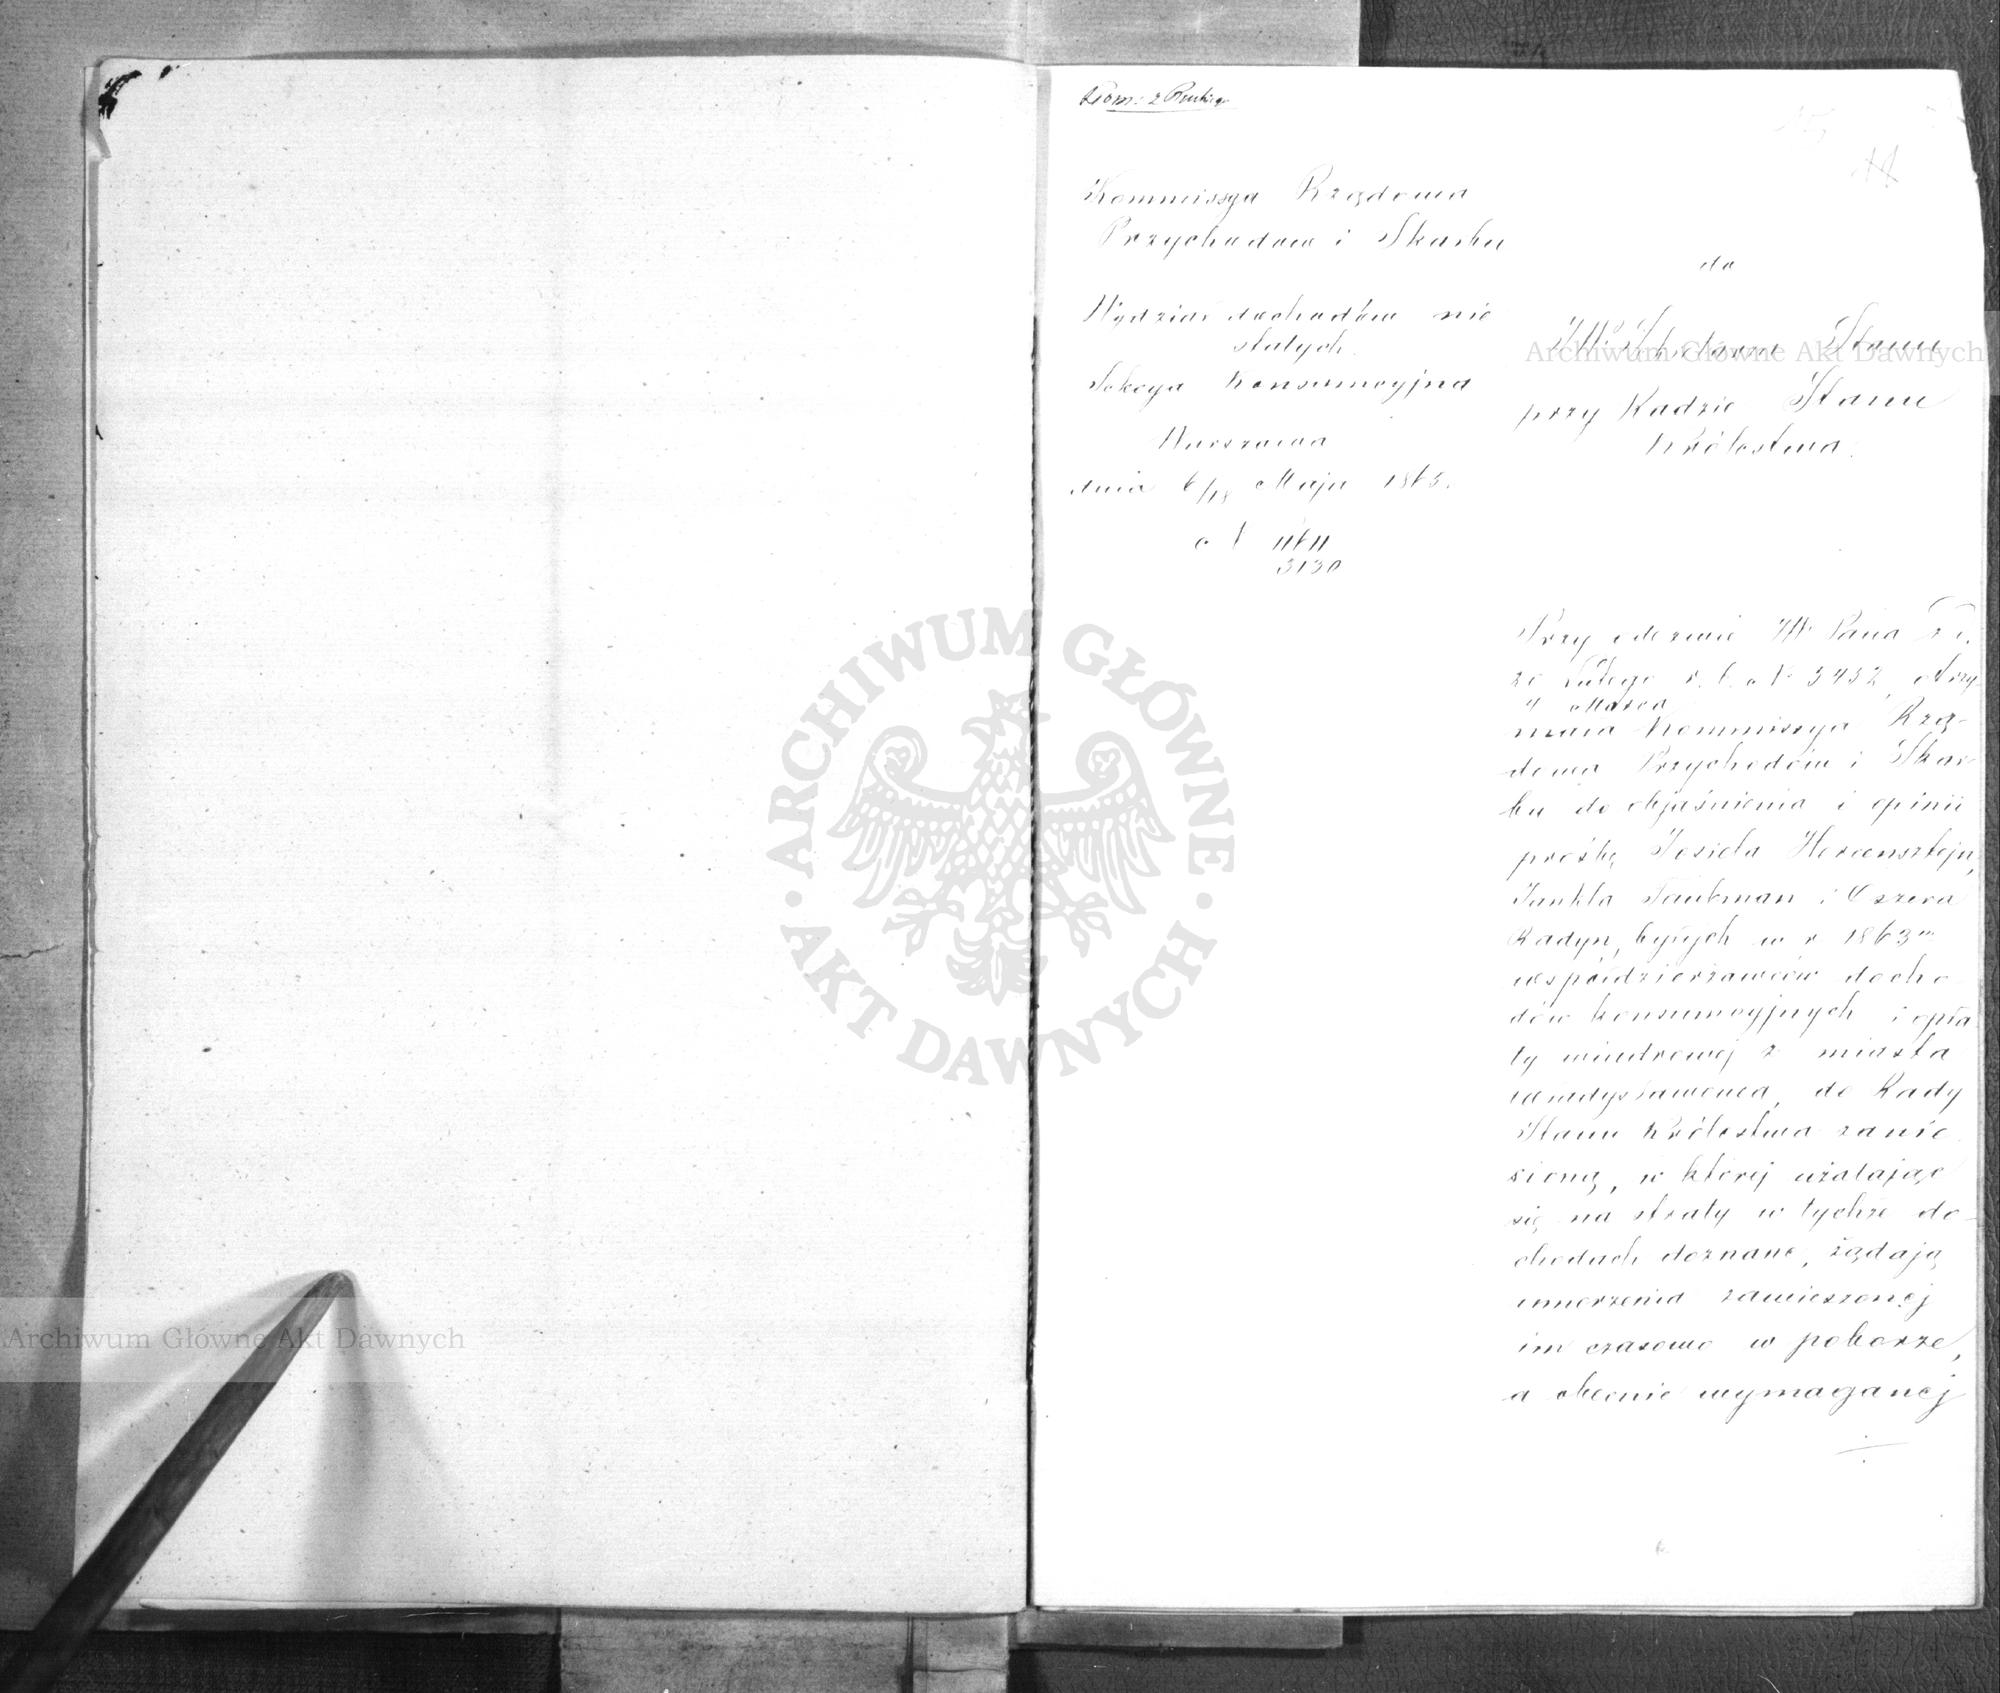 Kommissya Rządowa
Przychodow i Skarbu
Wydział dochodów nie
stałych
Sekcya Konsumcyjna
Warszawa
dnia 6/18 Maja 1865.
N 11611
3130
do
JWo Sekretarza Stanu
przy Radzie Stanu
Królestwa.
Przy odezwie JW Pana z d.
20 Lutego r. b. N 3432, otrzy-
4 Marca
mała Kommissya Rzą-
dowa Przychodów i Skar-
bu do objaśnienia i opinii
prośbę Josiela Hercensztejn,
Jankla Taubman i Oszera
Radyn, byłych w r 1863m
współdzierżawców docho-
dów konsumcyjnych i opła-
ty wiadrowej z miasta
Władysławowa, do Rady
Stanu Królestwa zanie-
sioną, w której użalając
się na straty w tychże do-
chodach doznane, żądają
umorzenia zawieszonej
im czasowo w poborze,
a obecnie wymaganej
ARCHIWUM GŁÓWNE
AKT DAWNYCH
Archiwum Główne Akt Dawnych
Archiwum Główne Akt Dawnych